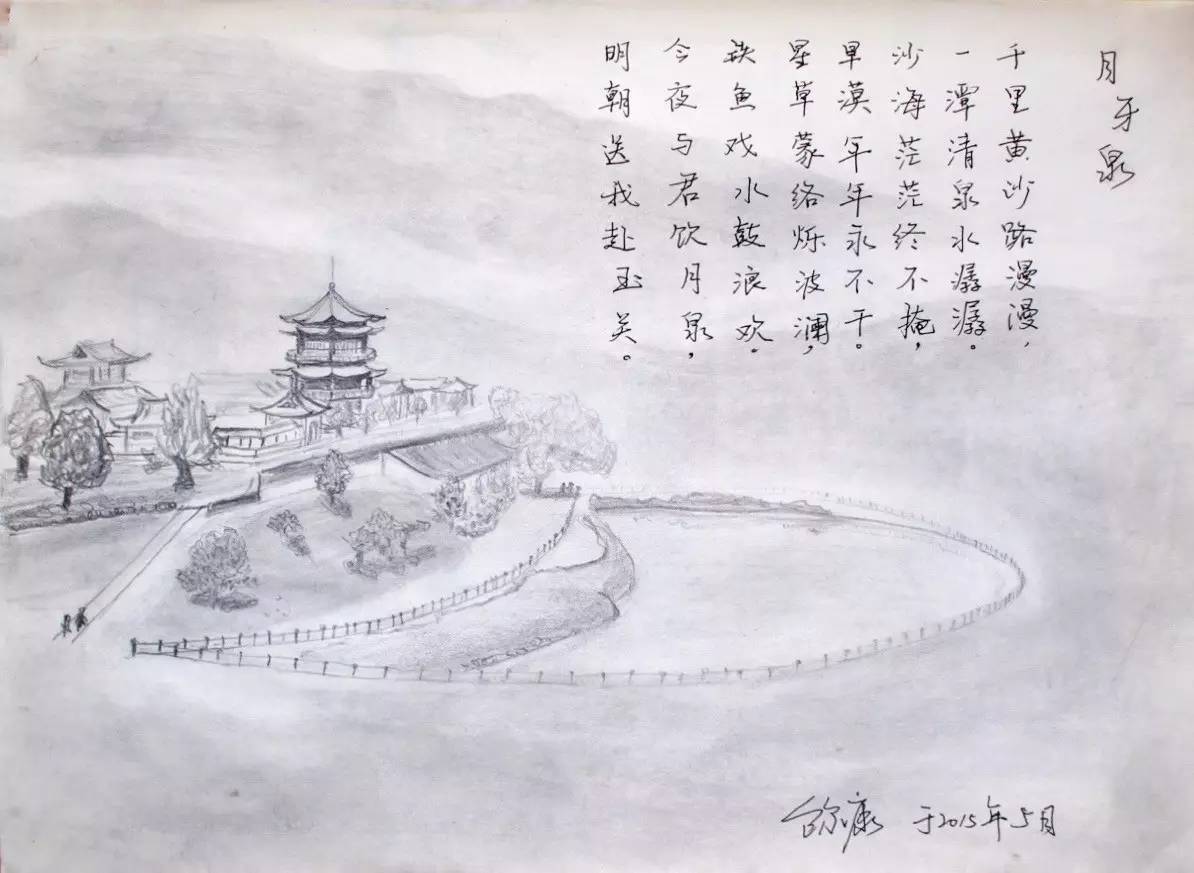 月牙泉
千里黄沙路漫漫,
一潭清泉水潺潺。
沙海茫茫终不掩,
旱漠年年永不干。
星草蒙络烁波澜,
铁鱼戏水鼓浪欢.
今夜与君饮月泉,
明朝送我赴玉关。
康 于2015年5月